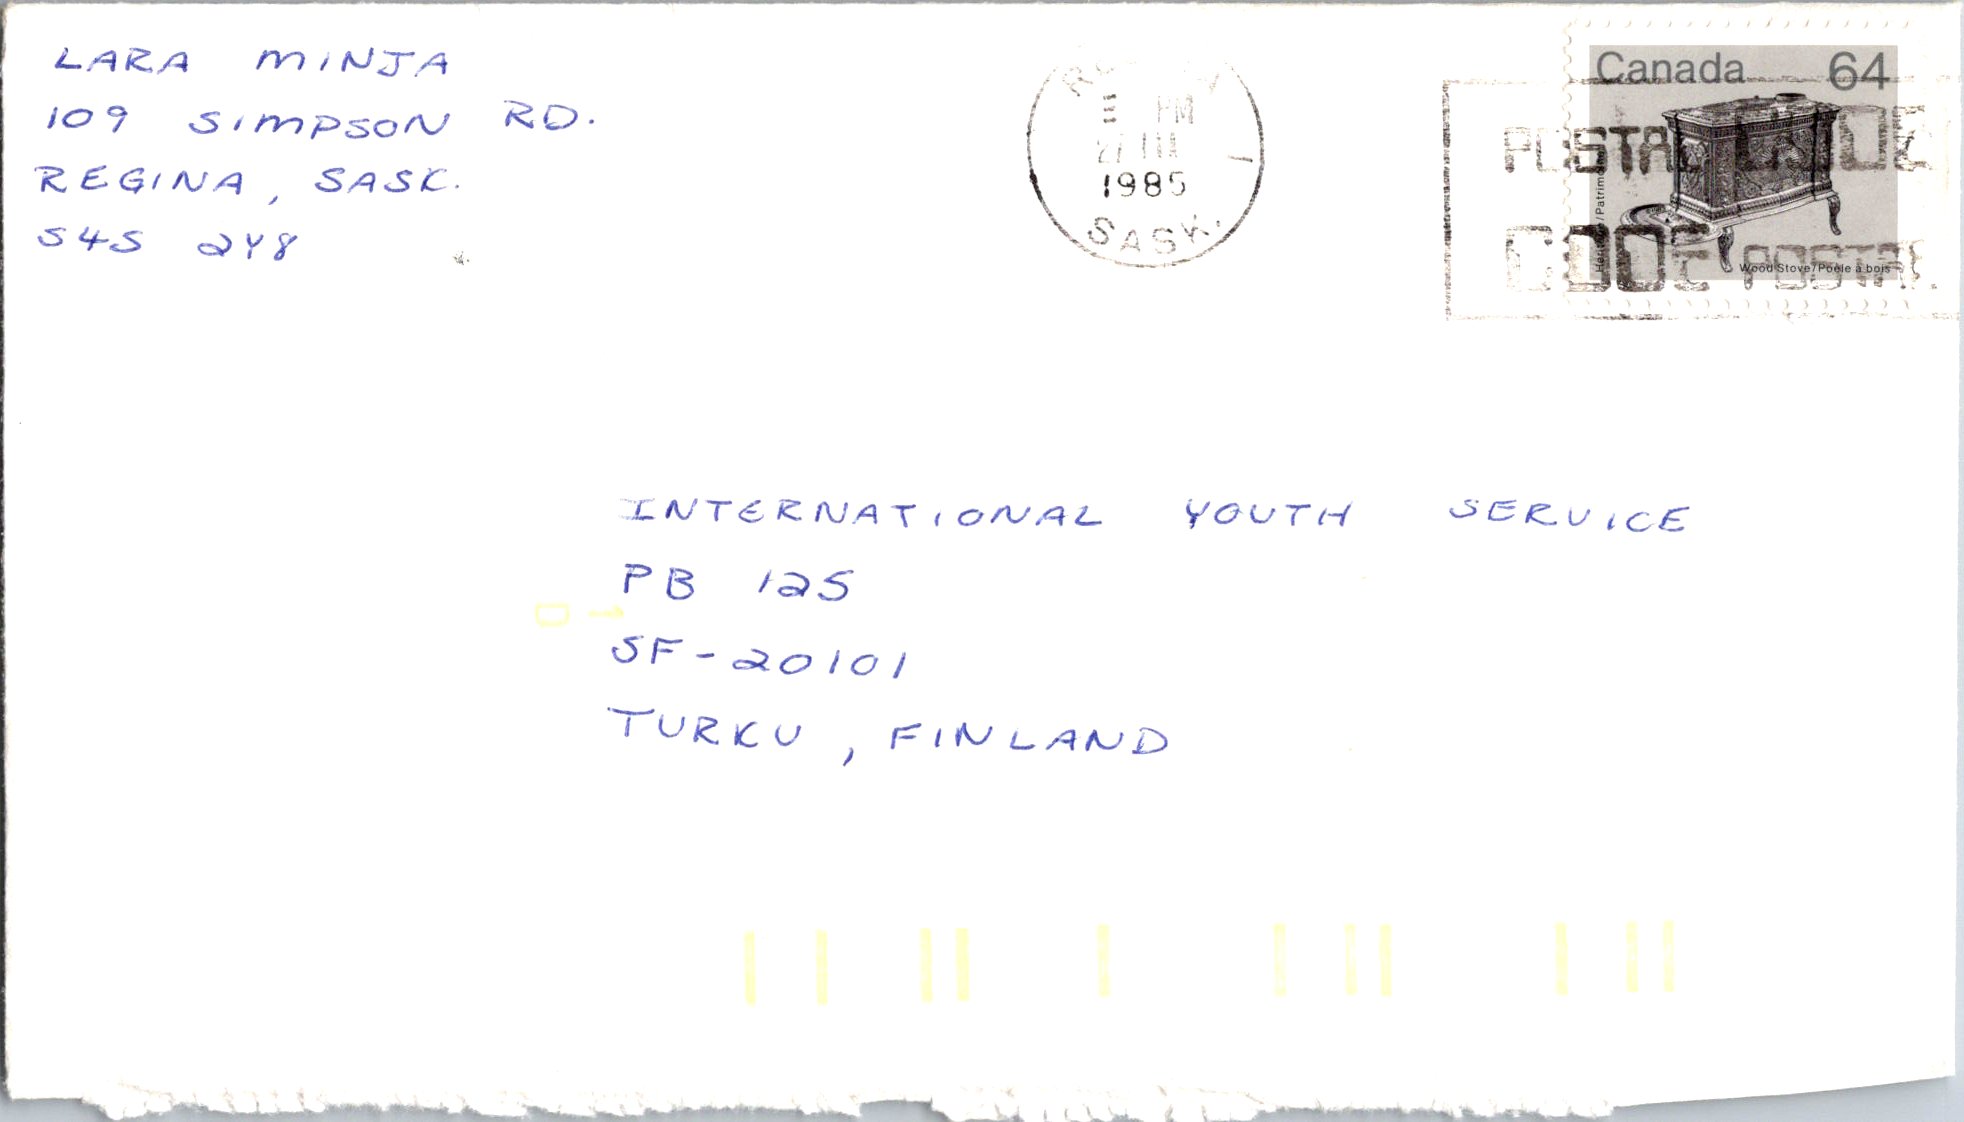 LARA MINJA
109 SIMPSON RD.
REGINA, SASK.
S4S 2Y8
PM
1985
SASK.
Canada 64
POSTAL CODE
CODE POSTAL
Wood Stove/Poêle à bois
INTERNATIONAL YOUTH SERVICE
PB 125
SF-20101
TURKU, FINLAND